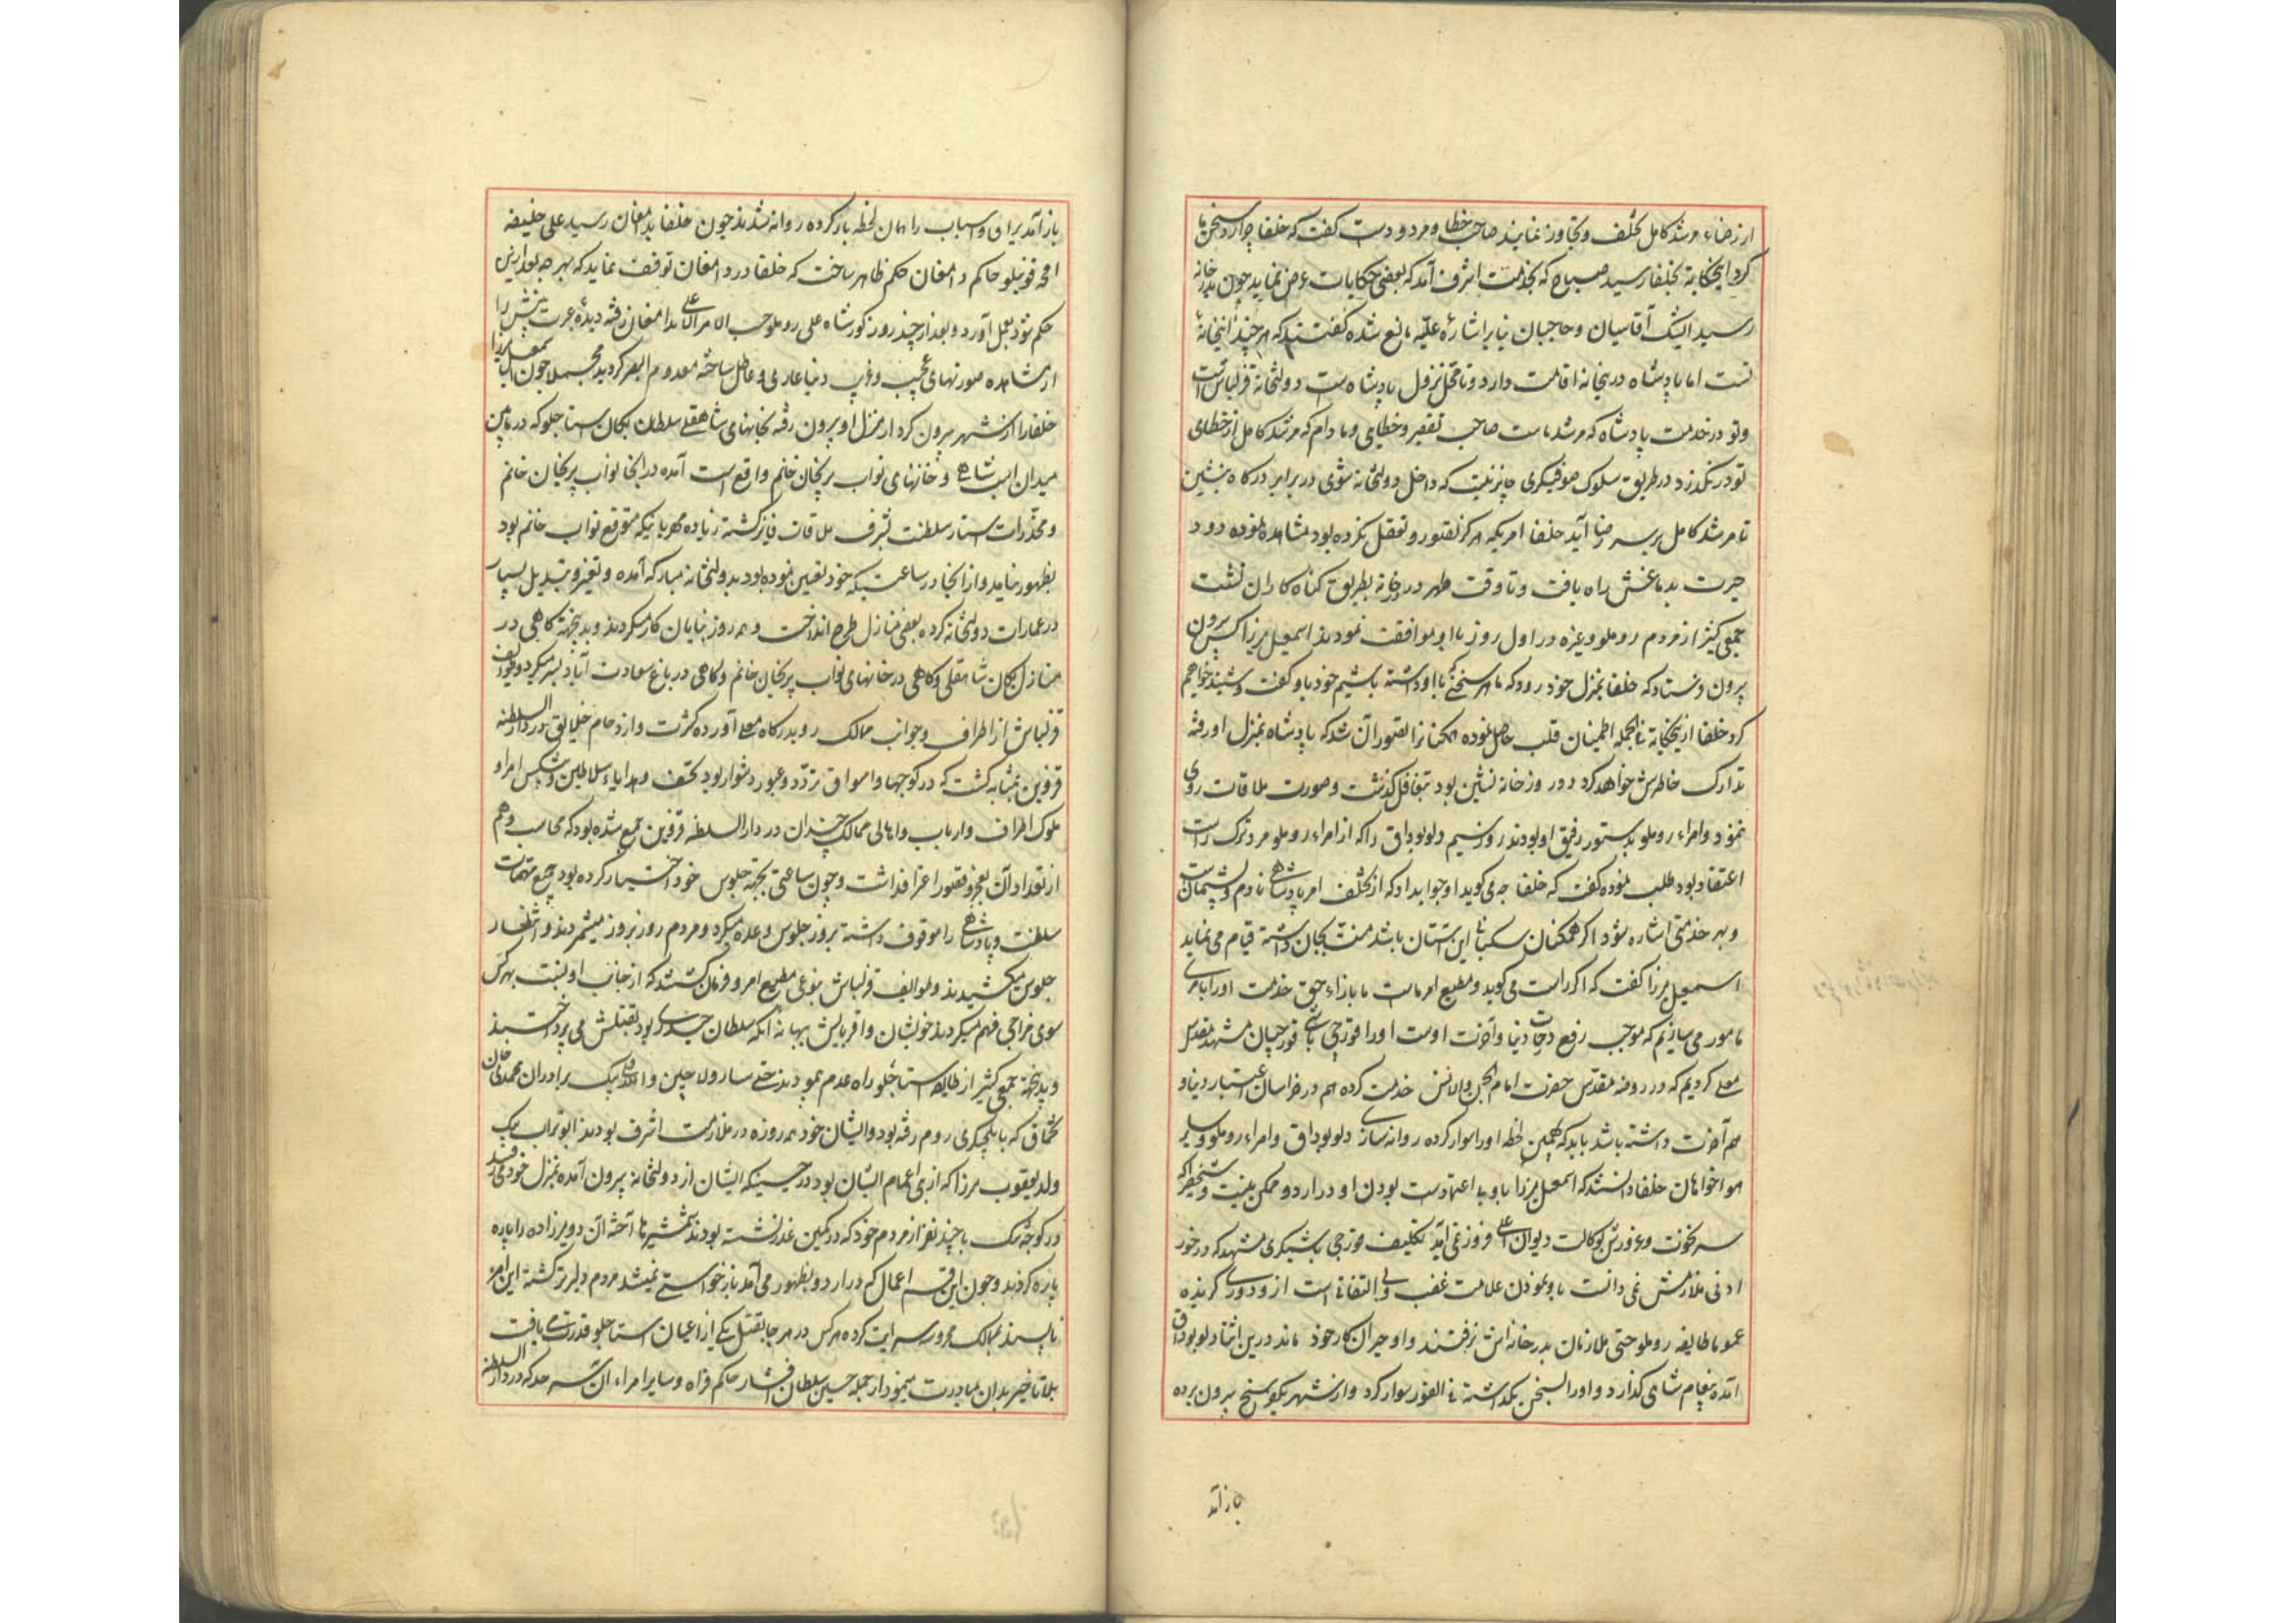 از رضاء مرشد کامل تخلف و تجاوز نمایند صاحب خطا و مردودست گفت که خلفا چرا رد سخن ما
کرد اینحکایة بخلفا رسید صباح که بخدمت اشرف آمد که بعضی حکایات عرض نماید چون بدرخانه
رسید ایشک آقاسیان و حاجبان بنابر اشارهٔ علیّه مانع شده گفتند که هرچند اینخانهٔ
تست اما پادشاه درینخانه اقامت دارد و تا محل نزول پادشاهست دولتخانهٔ قزلباش است
و تو در خدمت پادشاه که مرشد ماست صاحب تقصیر و خطایی و مادام که مرشد کامل از خطای
تو درنگذرد در طریق سلوک صوفیگری جایز نیست که داخل دولتخانه شوی در برابر درگاه بنشین
تا مرشد کامل بر سر رضا آید خلفا امریکه هرگز تصور و تعقل نکرده بود مشاهده نموده دود
حیرت بدماغش راه یافت و تا وقت ظهر در درخانه بطریق گناه کاران نشست
جمعی کثیر از مردم روملو و غیره در اول روز با او موافقت نمودند اسمعیل میرزا کس بیرون
بیرون فرستاد که خلفا بمنزل خود رود که ما هر سخنی با او داشته باشیم خود باو گفت و شنید خواهیم
کرد خلفا ازینحکایة فی الجمله اطمینان قلب حاصل نموده همکنانرا تصور آن شد که پادشاه بمنزل او رفته
تدارک خاطرش خواهد کرد دو روز خانه نشین بود بتغافل گذشت و صورت ملاقات روی
ننمود و امراء روملو بدستور رفیق او بودند روز سیم دلو بوداق را که از امراء روملو مرد ترک راست
اعتقاد بود طلب نموده گفت که خلفا چه می‌گوید او جواب داد که از تخلف امر پادشاهی نادم و پشیمانست
و بهر خدمتی اشاره شود اگر همه سکبانی این آستان باشد منت بجان داشته قیام می نماید
اسمعیل میرزا گفت که اگر راست می گوید و مطیع امر ماست ما بازاء حق خدمت او را بامری
مامور می سازیم که موجب رفع درجات دنیا و آخرت اوست او را قورچی باشی قورچیان مشهد مقدس
معلی کردیم که در روضه مقدس حضرت امام الجن و الانس خدمت کرده هم در خراسان اعتبار دنیا و
هم آخرت داشته باشد باید که همین لحظه او را سوار کرده روانه سازی دلو بوداق و امراء روملو و سایر
هواخواهان خلفا دانستند که اسمعیل میرزا باو بی اعتمادست بودن او در اردو ممکن نیست و شخصی را که
سر نخوت و غرورش بوکالت دیوان اعلی فرو نمی آمد تکلیف قورچی باشیگری مشهد که در خور
ادنی ملازمش نمی دانست باو نمودن علامت غضب و بی التفاتی است ازو دوری گزیده
عموما طایفه روملو حتی ملازمان بدر خانه اش نرفتند و او حیران کار خود ماند درین اثنا دلو بوداق
آمده پیغام شاهی گذارد و او را بسخن نگذاشته فی الفور سوار کرد و از شهر بیرون برده
باز آمد
باز آمد یراق و اسباب را همان لحظه بار کرده روانه شدند چون خلفا بدامغان رسید علی خلیفه
حاکم دامغان حکم ظاهر ساخت که خلفا در دامغان توقف نماید که بهرچه بعد ازین
حکم شود بعمل آورد و بعد از چند روز کور شاه علی روملو حسب الامر الاعلی بدامغان رفته دیدهٔ عبرت بینش را
از مشاهده صورتهای عجیب و غریب دنیا عاری و عاطل ساخته معدوم البصر گردید مجملا چون اسمعیل میرزا
خلفا را از شهر بیرون کرد از منزل او بیرون رفته بخانهای شاهقلی سلطان یکان استاجلو که در مابین
میدان اسب شاهی و خانهای نواب پریخان خانم واقع است آمده در انجا نواب پریخان خانم
و مخدّرات استار سلطنت بشرف ملاقات فایز گشته زیاده مهربانیکه متوقع نواب خانم بود
بظهور نیامد و از انجا در ساعتیکه خود تعیین نموده بود بدولتخانه مبارکه آمده و تغیر و تبدیل بسیار
در عمارات دولتخانه کرده بعضی منازل طرح انداخت و همه روز بنایان کار میکردند و بدینجهة گاهی در
منازل یکان شاهقلی و گاهی در خانهای نواب پریخان خانم و گاهی در باغ سعادت آباد بسر میکرد و طوایف
قزلباش از اطراف و جوانب ممالک رو بدرگاه معلی آورده کثرت و ازدحام خلایق در دار السلطنه
قزوین بمثابه گشت که در کوچها و اسواق تردّد و عبور دشوار بود تحف و هدایا و سلاطین و پیشکش امرا و
ملوک اطراف و ارباب و اهالی ممالک چندان در دار السلطنه قزوین جمع شده بود که محاسب وهم
از تعداد آن بعجز و قصور اعتراف داشت و چون ساعتی بجهة جلوس خود اختیار کرده بود جمیع مهمات
سلطنت و پادشاهی را موقوف داشته بروز جلوس وعده میکرد و مردم روز بروز میشمردند و انتظار
جلوس میکشیدند و طوایف قزلباش بنوعی مطیع امر و فرمان گشتند که از جانب او نسبت بهر کس
سوی مزاجی فهم میکردند خویشان و اقربایش ببهانه آنکه سلطان حیدری بود بقتلش می پرداختند
و بدینجهة جمعی کثیر از طایفه استاجلو راه عدم پیمودند حتی سارو و اللهقلی بیک برادران محمدی خان
تخماق که بایلچیگری روم رفته بود و ایشان خود همه روزه در ملازمت اشرف بودند ابو تراب بیک
ولد یعقوب میرزا که از بنی اعمام ایشان بود در حینیکه ایشان از دولتخانه بیرون آمده بمنزل خود می رفتند
در کوچه تنک با چند نفر از مردم خود که در کمین غدر نشسته بودند شمشیرها آخته آن دو میرزاده را پاره
پاره کردند و چون این قسم اعمال که در اردو بظهور می آمد بازخواستی نمیشد مردم دلیرتر گشته این امر
ناپسند بممالک محروسه سرایت کرده هر کس در هر جا بقتل یکی از اعیان استاجلو قدرت می یافت
بلا تاخیر بدان مبادرت مینمود از جمله حسین سلطان افشار حاکم فراه و سایر امراء آن سرحد که در دار السلطنه